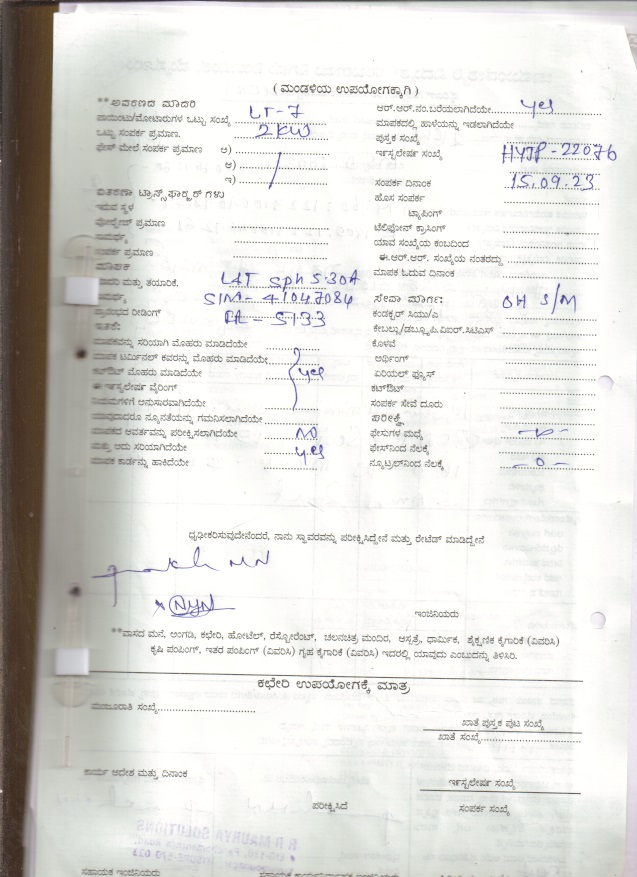 ( ಮಂಡಳಿಯ ಉಪಯೋಗಕ್ಕಾಗಿ )
**ಆವರಣದ ಮಾದರಿ LT-7
ಪಾಯಿಂಟು/ಮೋಟಾರುಗಳ ಒಟ್ಟು ಸಂಖ್ಯೆ
ಒಟ್ಟು ಸಂಪರ್ಕ ಪ್ರಮಾಣ. 2KW
ಫೇಸ್ ಮೇಲೆ ಸಂಪರ್ಕ ಪ್ರಮಾಣ ಅ)
ಆ)
ಇ)
ವಿತರಣಾ ಟ್ರಾನ್ಸ್‌ಫಾರ್ಮರ್ ಗಳು
ಇರುವ ಸ್ಥಳ
ವೋಲ್ಟೇಜ್ ಪ್ರಮಾಣ
ಸಾಮರ್ಥ್ಯ
ಸಂಪರ್ಕ ಪ್ರಮಾಣ
ಮಾಪಕ
ಮಾದರಿ ಮತ್ತು ತಯಾರಿಕೆ. L&T Sph 5-30A
ಸಾಮರ್ಥ್ಯ SIM- 41047084
ಪ್ರಾರಂಭದ ರೀಡಿಂಗ್ FL - 5133
ಇತರೆ:
ಮಾಪಕವನ್ನು ಸರಿಯಾಗಿ ಮೊಹರು ಮಾಡಿದೆಯೇ
ಮಾಪಕ ಟರ್ಮಿನಲ್ ಕವರನ್ನು ಮೊಹರು ಮಾಡಿದೆಯೇ
ಕಟ್‌ಔಟ್ ಮೊಹರು ಮಾಡಿದೆಯೇ yes
ಈ ಇನ್ಸ್ಟಲೇಷನ್ ವೈರಿಂಗ್
ನಿಯಮಗಳಿಗೆ ಅನುಸಾರವಾಗಿದೆಯೇ
ಯಾವುದಾದರೂ ನ್ಯೂನತೆಯನ್ನು ಗಮನಿಸಲಾಗಿದೆಯೇ
ಮಾಪಕದ ಆವರ್ತವನ್ನು ಪರೀಕ್ಷಿಸಲಾಗಿದೆಯೇ NO
ಮತ್ತು ಅದು ಸರಿಯಾಗಿದೆಯೇ yes
ಮಾಪಕ ಕಾರ್ಡನ್ನು ಹಾಕಿದೆಯೇ
ಆರ್.ಆರ್.ನಂ.ಬರೆಯಲಾಗಿದೆಯೇ yes
ಮಾಪಕದಲ್ಲಿ ಹಾಳೆಯನ್ನು ಇಡಲಾಗಿದೆಯೇ
ಪುಸ್ತಕ ಸಂಖ್ಯೆ
ಇನ್ಸ್ಟಲೇಷನ್ ಸಂಖ್ಯೆ HYJP-22076
ಸಂಪರ್ಕ ದಿನಾಂಕ 15.09.23
ಹೊಸ ಸಂಪರ್ಕ
ಟ್ಯಾಪಿಂಗ್
ಟೆಲಿಫೋನ್ ಕ್ರಾಸಿಂಗ್
ಯಾವ ಸಂಖ್ಯೆಯ ಕಂಬದಿಂದ
ಈ.ಆರ್.ಆರ್. ಸಂಖ್ಯೆಯ ನಂತರದ್ದು
ಮಾಪಕ ಓದುವ ದಿನಾಂಕ
ಸೇವಾ ಮಾರ್ಗ: OH S/M
ಕಂಡಕ್ಟರ್ ಸಿಯು/ಎ
ಕೇಬಲ್ಲು/ಡಬ್ಲ್ಯೂಪಿ.ವಿಐಆರ್.ಸಿಟಿಎಸ್
ಕೊಳವೆ
ಅರ್ಥಿಂಗ್
ಏರಿಯಲ್ ಫ್ಯೂಸ್
ಕಟ್‌ಔಟ್
ಸಂಪರ್ಕ ಸೇವೆ ದೂರು
ಪರೀಕ್ಷೆ
ಫೇಸುಗಳ ಮಧ್ಯೆ
ಫೇಸ್‌ನಿಂದ ನೆಲಕ್ಕೆ
ನ್ಯೂಟ್ರಲ್‌ನಿಂದ ನೆಲಕ್ಕೆ - 0 -
ಧೃಢೀಕರಿಸುವುದೇನೆಂದರೆ, ನಾನು ಸ್ಥಾವರವನ್ನು ಪರೀಕ್ಷಿಸಿದ್ದೇನೆ ಮತ್ತು ರೇಟೆಡ್ ಮಾಡಿದ್ದೇನೆ
ಇಂಜಿನಿಯರು
**ವಾಸದ ಮನೆ, ಅಂಗಡಿ, ಕಛೇರಿ, ಹೋಟೆಲ್, ರೆಸ್ಟೋರೆಂಟ್, ಚಲನಚಿತ್ರ ಮಂದಿರ, ಆಸ್ಪತ್ರೆ, ಧಾರ್ಮಿಕ, ಶೈಕ್ಷಣಿಕ ಕೈಗಾರಿಕೆ (ವಿವರಿಸಿ)
ಕೃಷಿ ಪಂಪಿಂಗ್, ಇತರ ಪಂಪಿಂಗ್ (ವಿವರಿಸಿ) ಗೃಹ ಕೈಗಾರಿಕೆ (ವಿವರಿಸಿ) ಇದರಲ್ಲಿ ಯಾವುದು ಎಂಬುದನ್ನು ತಿಳಿಸಿರಿ.
ಕಛೇರಿ ಉಪಯೋಗಕ್ಕೆ ಮಾತ್ರ
ಮಂಜೂರಾತಿ ಸಂಖ್ಯೆ
ಖಾತೆ ಪುಸ್ತಕ ಪುಟ ಸಂಖ್ಯೆ
ಖಾತೆ ಸಂಖ್ಯೆ
ಕಾರ್ಯ ಆದೇಶ ಮತ್ತು ದಿನಾಂಕ
ಇನ್ಸ್ಟಲೇಷನ್ ಸಂಖ್ಯೆ
ಪರೀಕ್ಷಿಸಿದೆ
ಸಂಪರ್ಕ ಸಂಖ್ಯೆ
R R MAURYA SOLUTIONS
ಸಹಾಯಕ ಇಂಜಿನಿಯರು